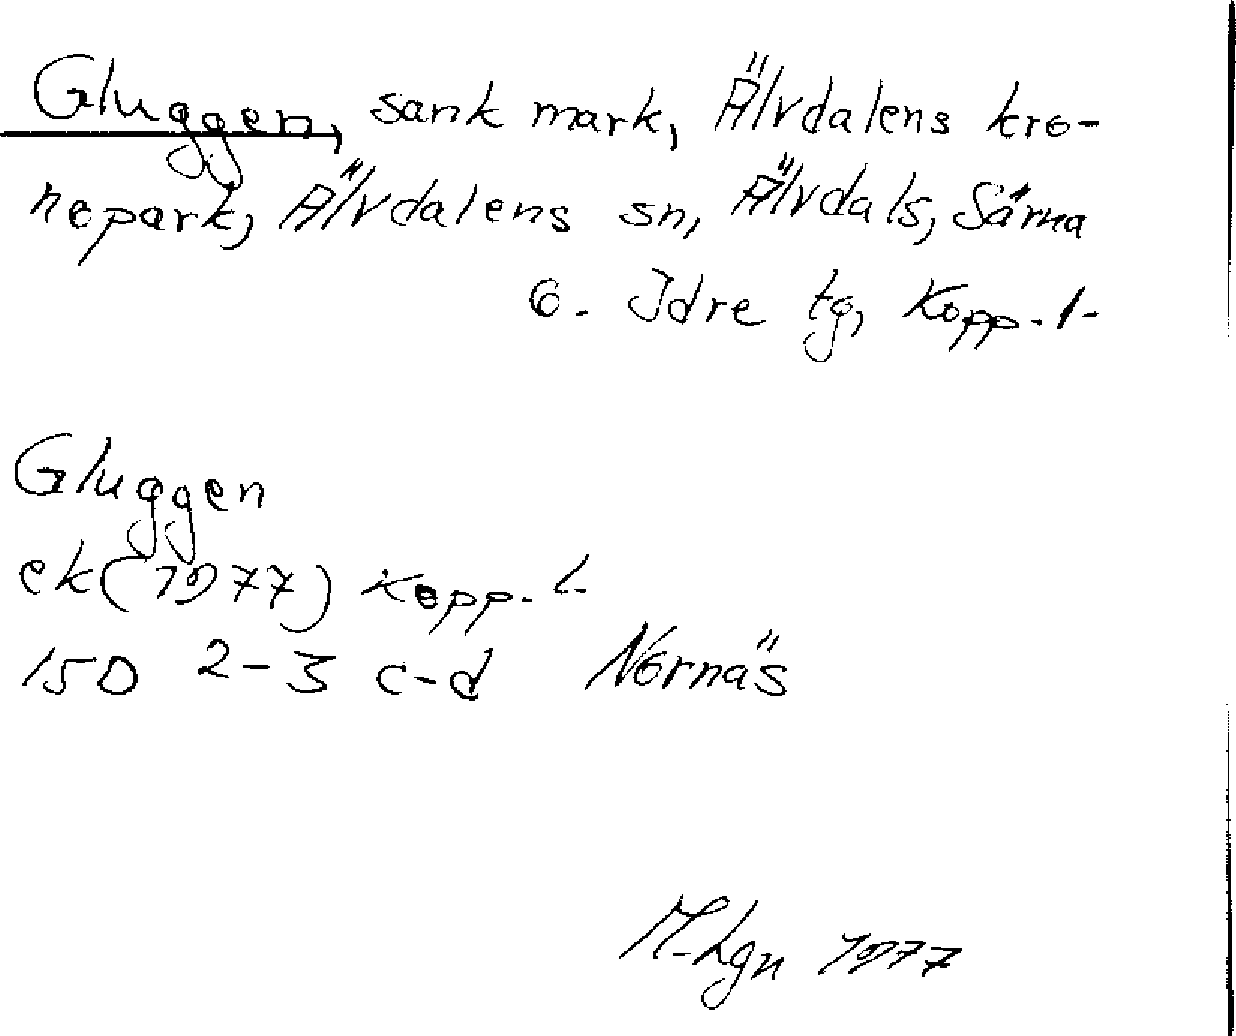 Gluggen, sank mark, Älvdalens kro-
nepark, Älvdalens sn, Älvdals, Särna
o. Idre tg, Kopp. l.
Gluggen
ek (1977) Kopp. l.
15D 2-3 c-d Nornäs
1977